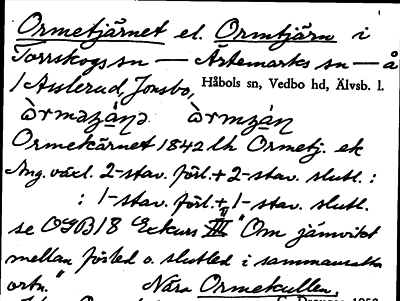 Ormetjärnet el. Ormtjärn i
Torrskogs sn — Ärtemarks sn — å
/ Asslerud, Jonsbo, Håbols sn, Vedbo hd, Älvsb. l.
Ormekärnet 1842 lh Ormetj. ek
Ang. växl. 2-stav. förl. + 2-stav. slutl. :
: 1-stav. förl. + 1-stav. slutl.
se OGB 18 Eckurs III "Om jämvikt
mellan förled o. slutled i sammansatta
ortn." Nära Ormekullen,